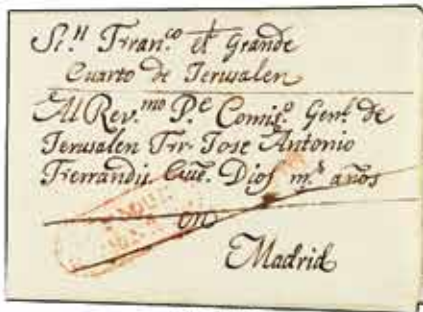 Sn. Franco. el Grande
Cuarto de Jerusalen
Al Rev.mo P.e Comiso. Genl. de
Jerusalen Fr. Jose Antonio
Ferrandis. Gue. Dios ms. años
en
Madrid